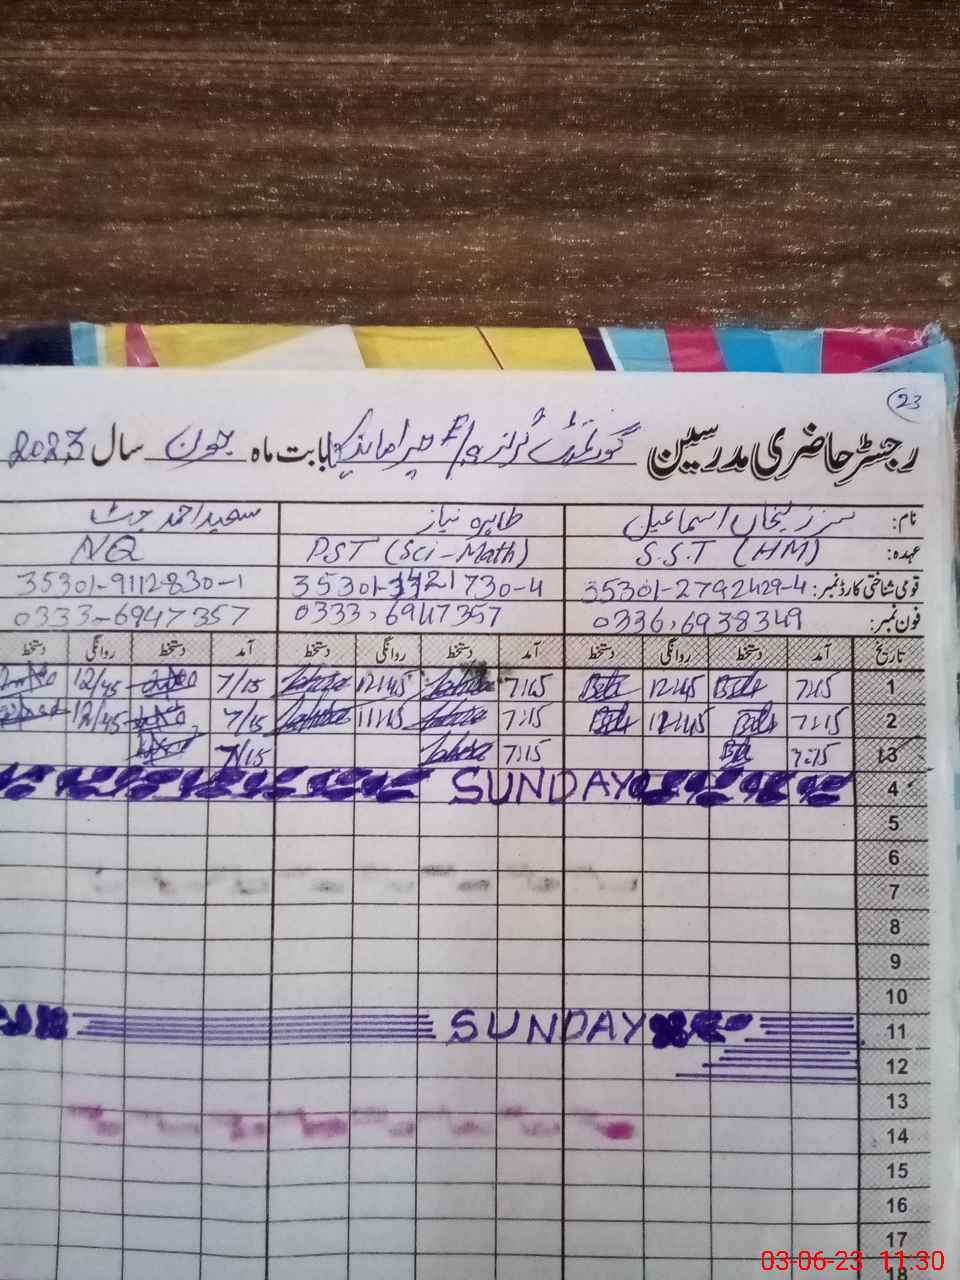 23
رجسٹر حاضری مدرسین گورنمنٹ گرلز بابت ماہ جون سال 2023
نام: مسز اسماعیل طاہرہ نیاز سعید احمد
عہدہ: S.S.T (HM) PST (Sci-Math) NQ
قومی شناختی کارڈ نمبر: 35301-2792429-4 35301-3421730-4 35301-9112830-1
فون نمبر: 0336,6938349 0333,6947357 0333-6947357
تاریخ آمد دستخط روانگی دستخط آمد دستخط روانگی دستخط آمد دستخط روانگی دستخط
1 7:15 12:45 7:15 12:45 7/15 12/45
2 7:15 12:45 7:15 7/15 12/45
3 7:15 7:15 7/15
4 SUNDAY
5
6
7
8
9
10
11 SUNDAY
12
13
14
15
16
17
18
03-06-23 11.30